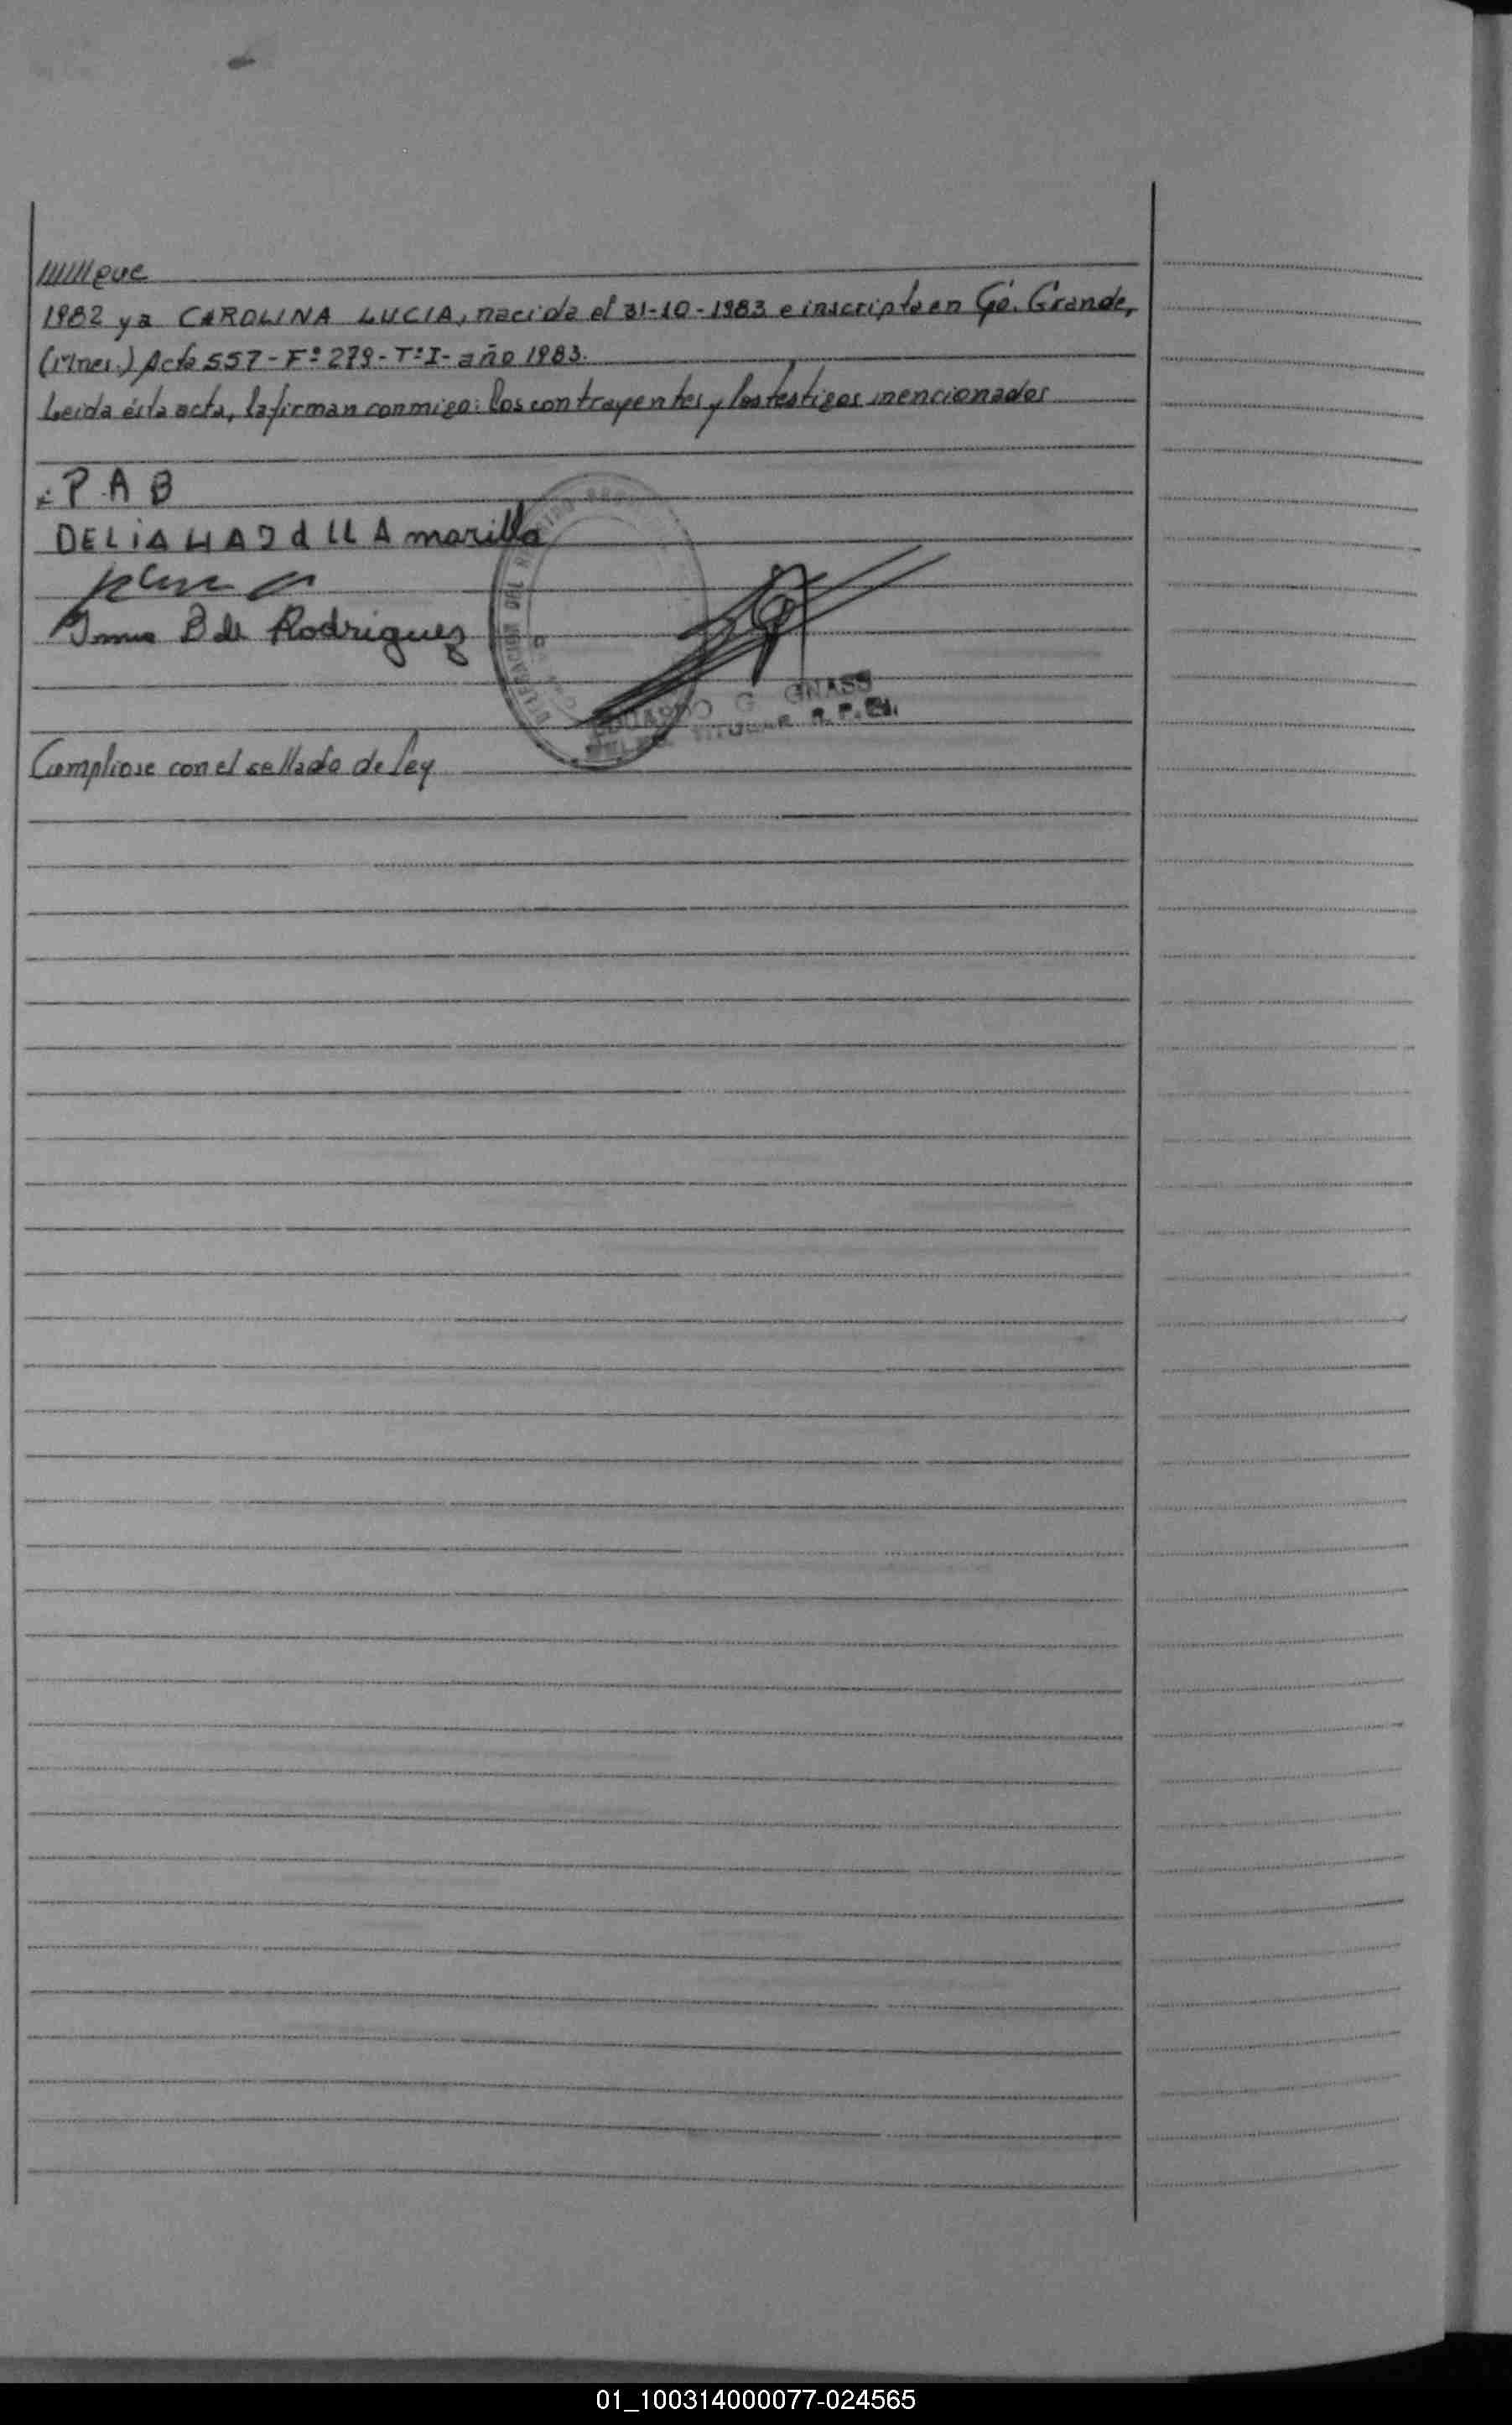 //////que
1982 y a CAROLINA LUCIA, nacida el 31-10-1983 e inscripta en Gó. Grande,
(Mnes.) Acta 557-Fº 279-TºI-año 1983.
Leida ésta acta, la firman conmigo: los contrayentes y los testigos mencionados
P A B
DELIA marilla
B de Rodriguez
EDUARDO G GNASS
TITULAR R. P.
Cumpliose con el sellado de Ley
01_100314000077-024565